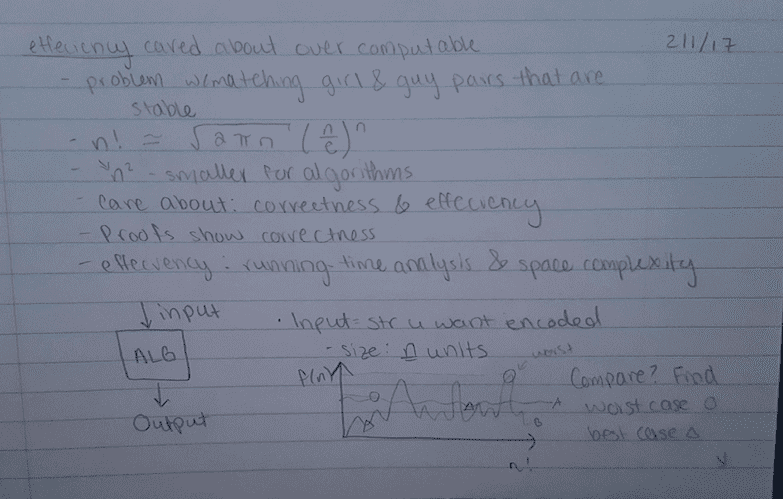 effeciency cared about over computable 2/1/17
- problem w/matching girl & guy pairs that are
stable
- n! ≈ √2πn (n/e)ⁿ
- n² - smaller for algorithms
- care about: correctness & effeciency
- Proofs show correctness
- effeciency: running-time analysis & space complexity
↓ input
ALG
↓
Output
• Input = str u want encoded
- size: n units
worst
f(n)
A
B
n!
Compare? Find
worst case O
best case Δ